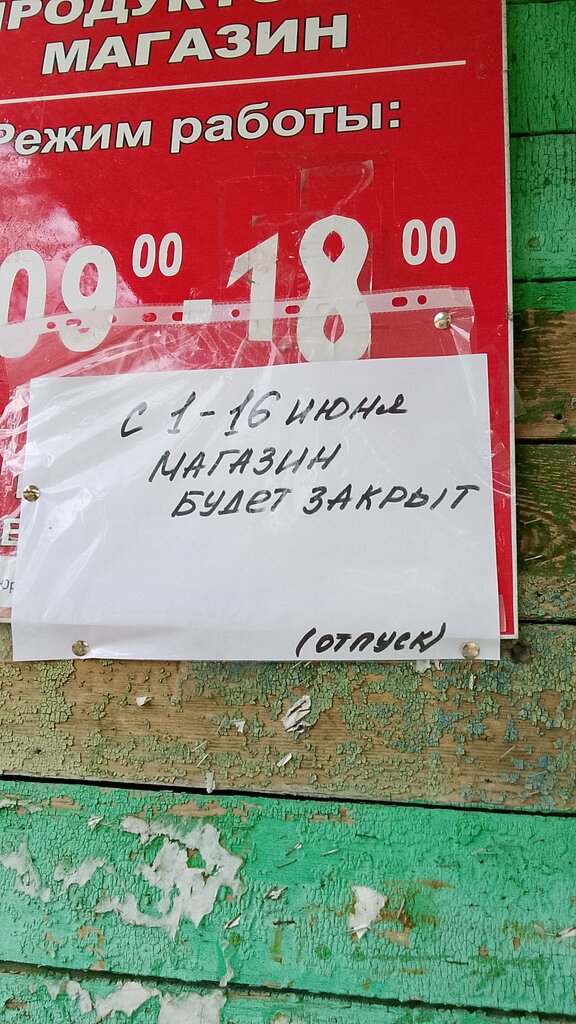 МАГАЗИН
Режим работы:
09 00 - 18 00
с 1-16 июня
МАГАЗИН
БУДЕТ ЗАКРЫТ
(ОТПУСК)